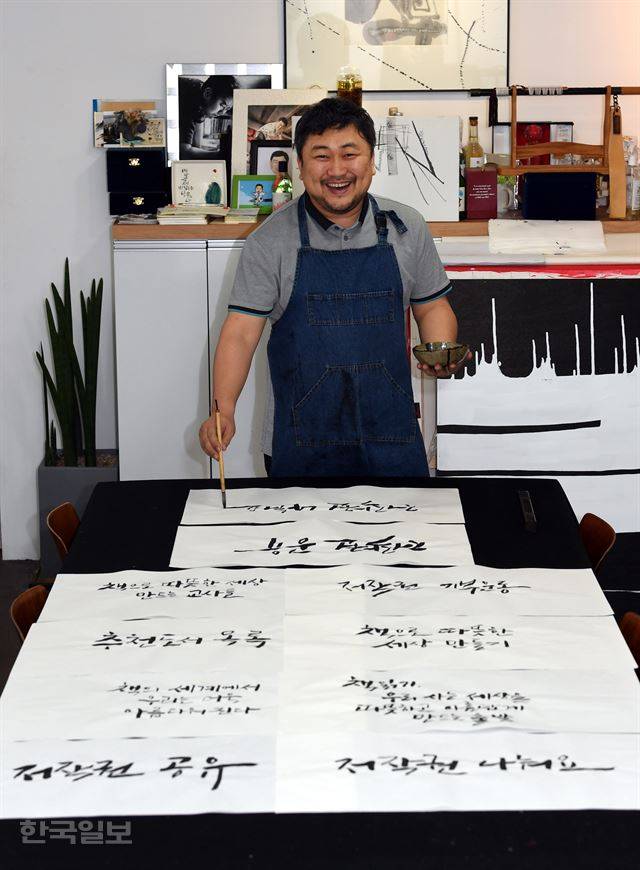 책으로 따뜻한 세상
만드는 교사들
저작권 기부운동
추천도서 목록
책으로 따뜻한
세상 만들기
책의 세계에서
우리는 더욱
아름다워진다
책읽기
우리 사는 세상을
따뜻하고 아름답게
만드는 출발
저작권 공유
저작권 나눠요
한국일보